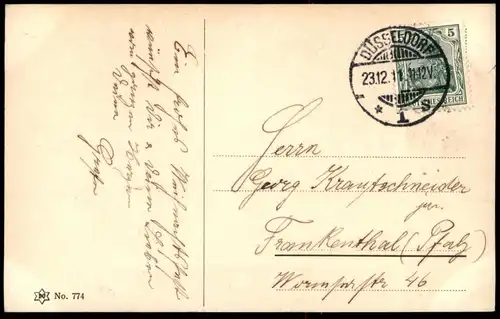 Ein frohes Weihnachtsfest
wünscht Dir & Deinen Lieben
von ganzem Herzen
Deine
DÜSSELDORF
23.12.11. 11-12V.
* 1 S
5
REICH
Herrn
Georg Krautschneider
jun.
Frankenthal (Pfalz)
Wormserstr 46
No. 774